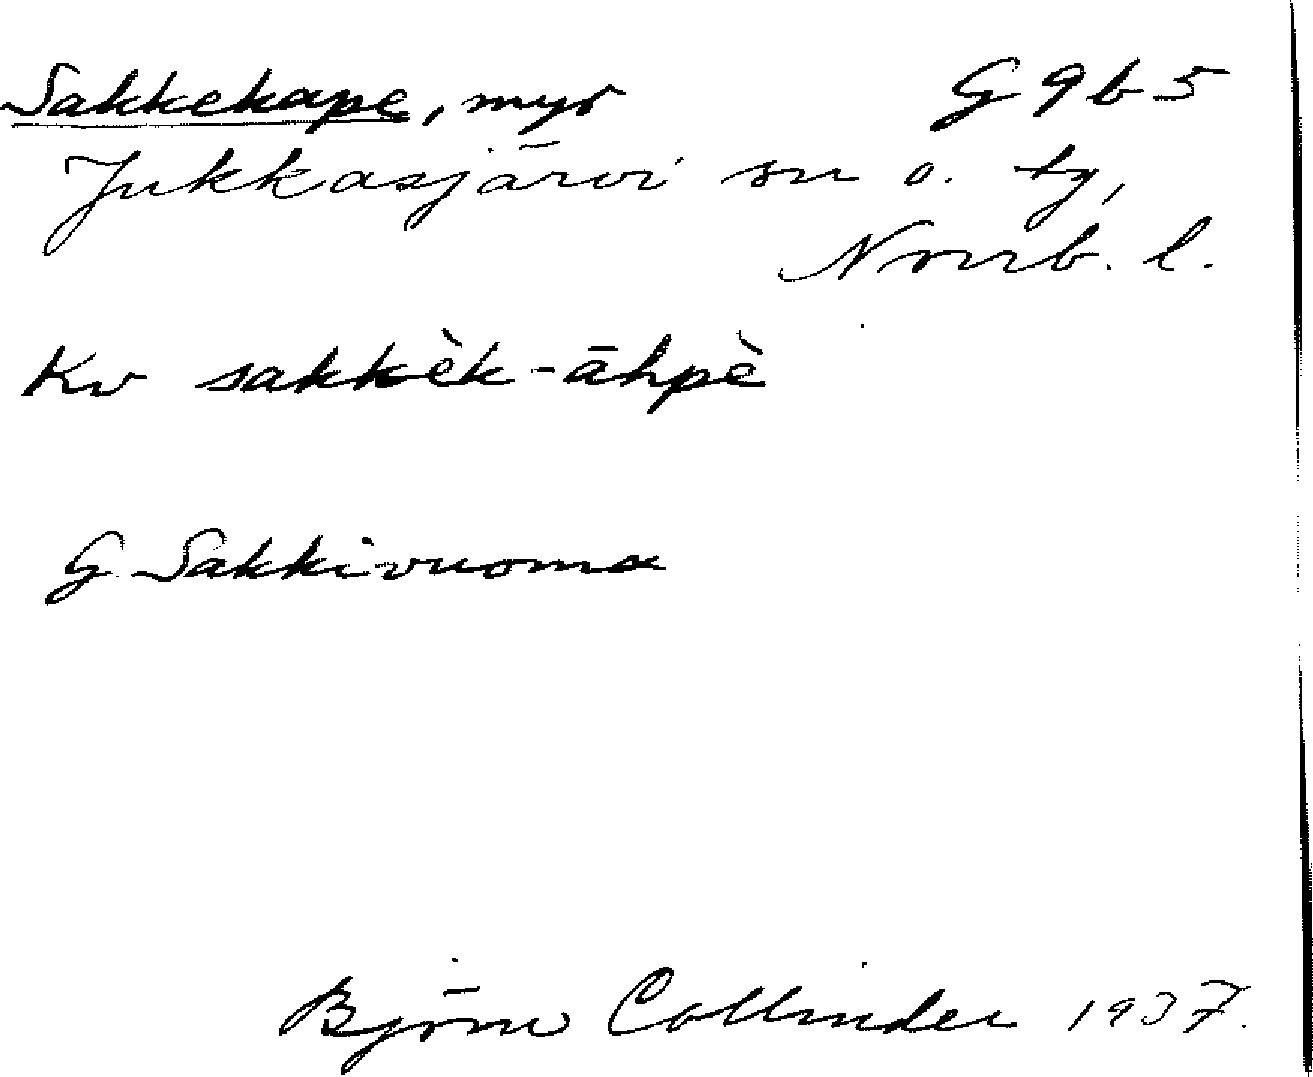 Sakkekape, myr G 9 b 5
Jukkasjärvi sn o. tg,
Norrb. l.
Kv sakkèk-āhpè
G Sakkivuoma
Björn Collinder 1937.